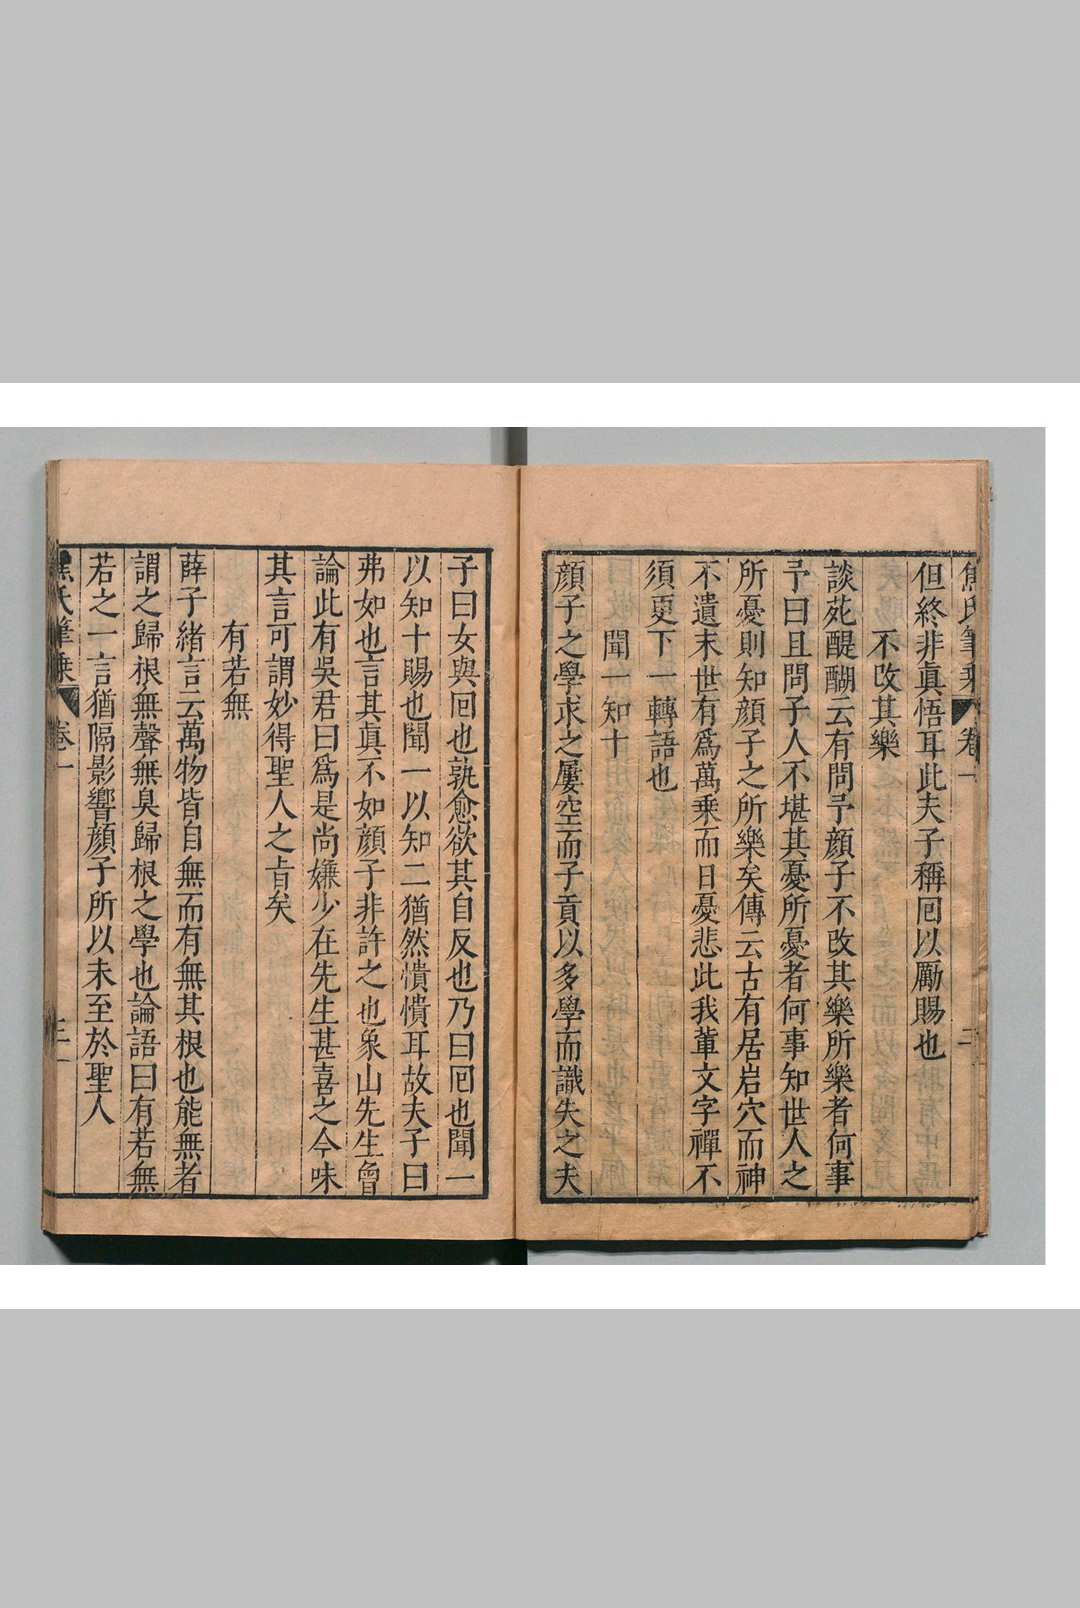 焦氏筆乘 卷一 二
但終非眞悟耳此夫子稱囘以勵賜也
不改其樂
談苑醍醐云有問予顔子不改其樂所樂者何事
予曰且問子人不堪其憂所憂者何事知世人之
所憂則知顔子之所樂矣傳云古有居岩穴而神
不遺末世有爲萬乘而日憂悲此我軰文字禪不
須更下一轉語也
聞一知十
顔子之學求之屢空而子貢以多學而識失之夫
子曰女與囘也孰愈欲其自反也乃曰囘也聞一
以知十賜也聞一以知二猶然憒憒耳故夫子曰
弗如也言其眞不如顔子非許之也象山先生曾
論此有吳君曰爲是尚嫌少在先生甚喜之今味
其言可謂妙得聖人之㫖矣
有若無
薛子緒言云萬物皆自無而有無其根也能無者
謂之歸根無聲無臭歸根之學也論語曰有若無
若之一言猶隔影響顔子所以未至於聖人
焦氏筆乘 卷一 三